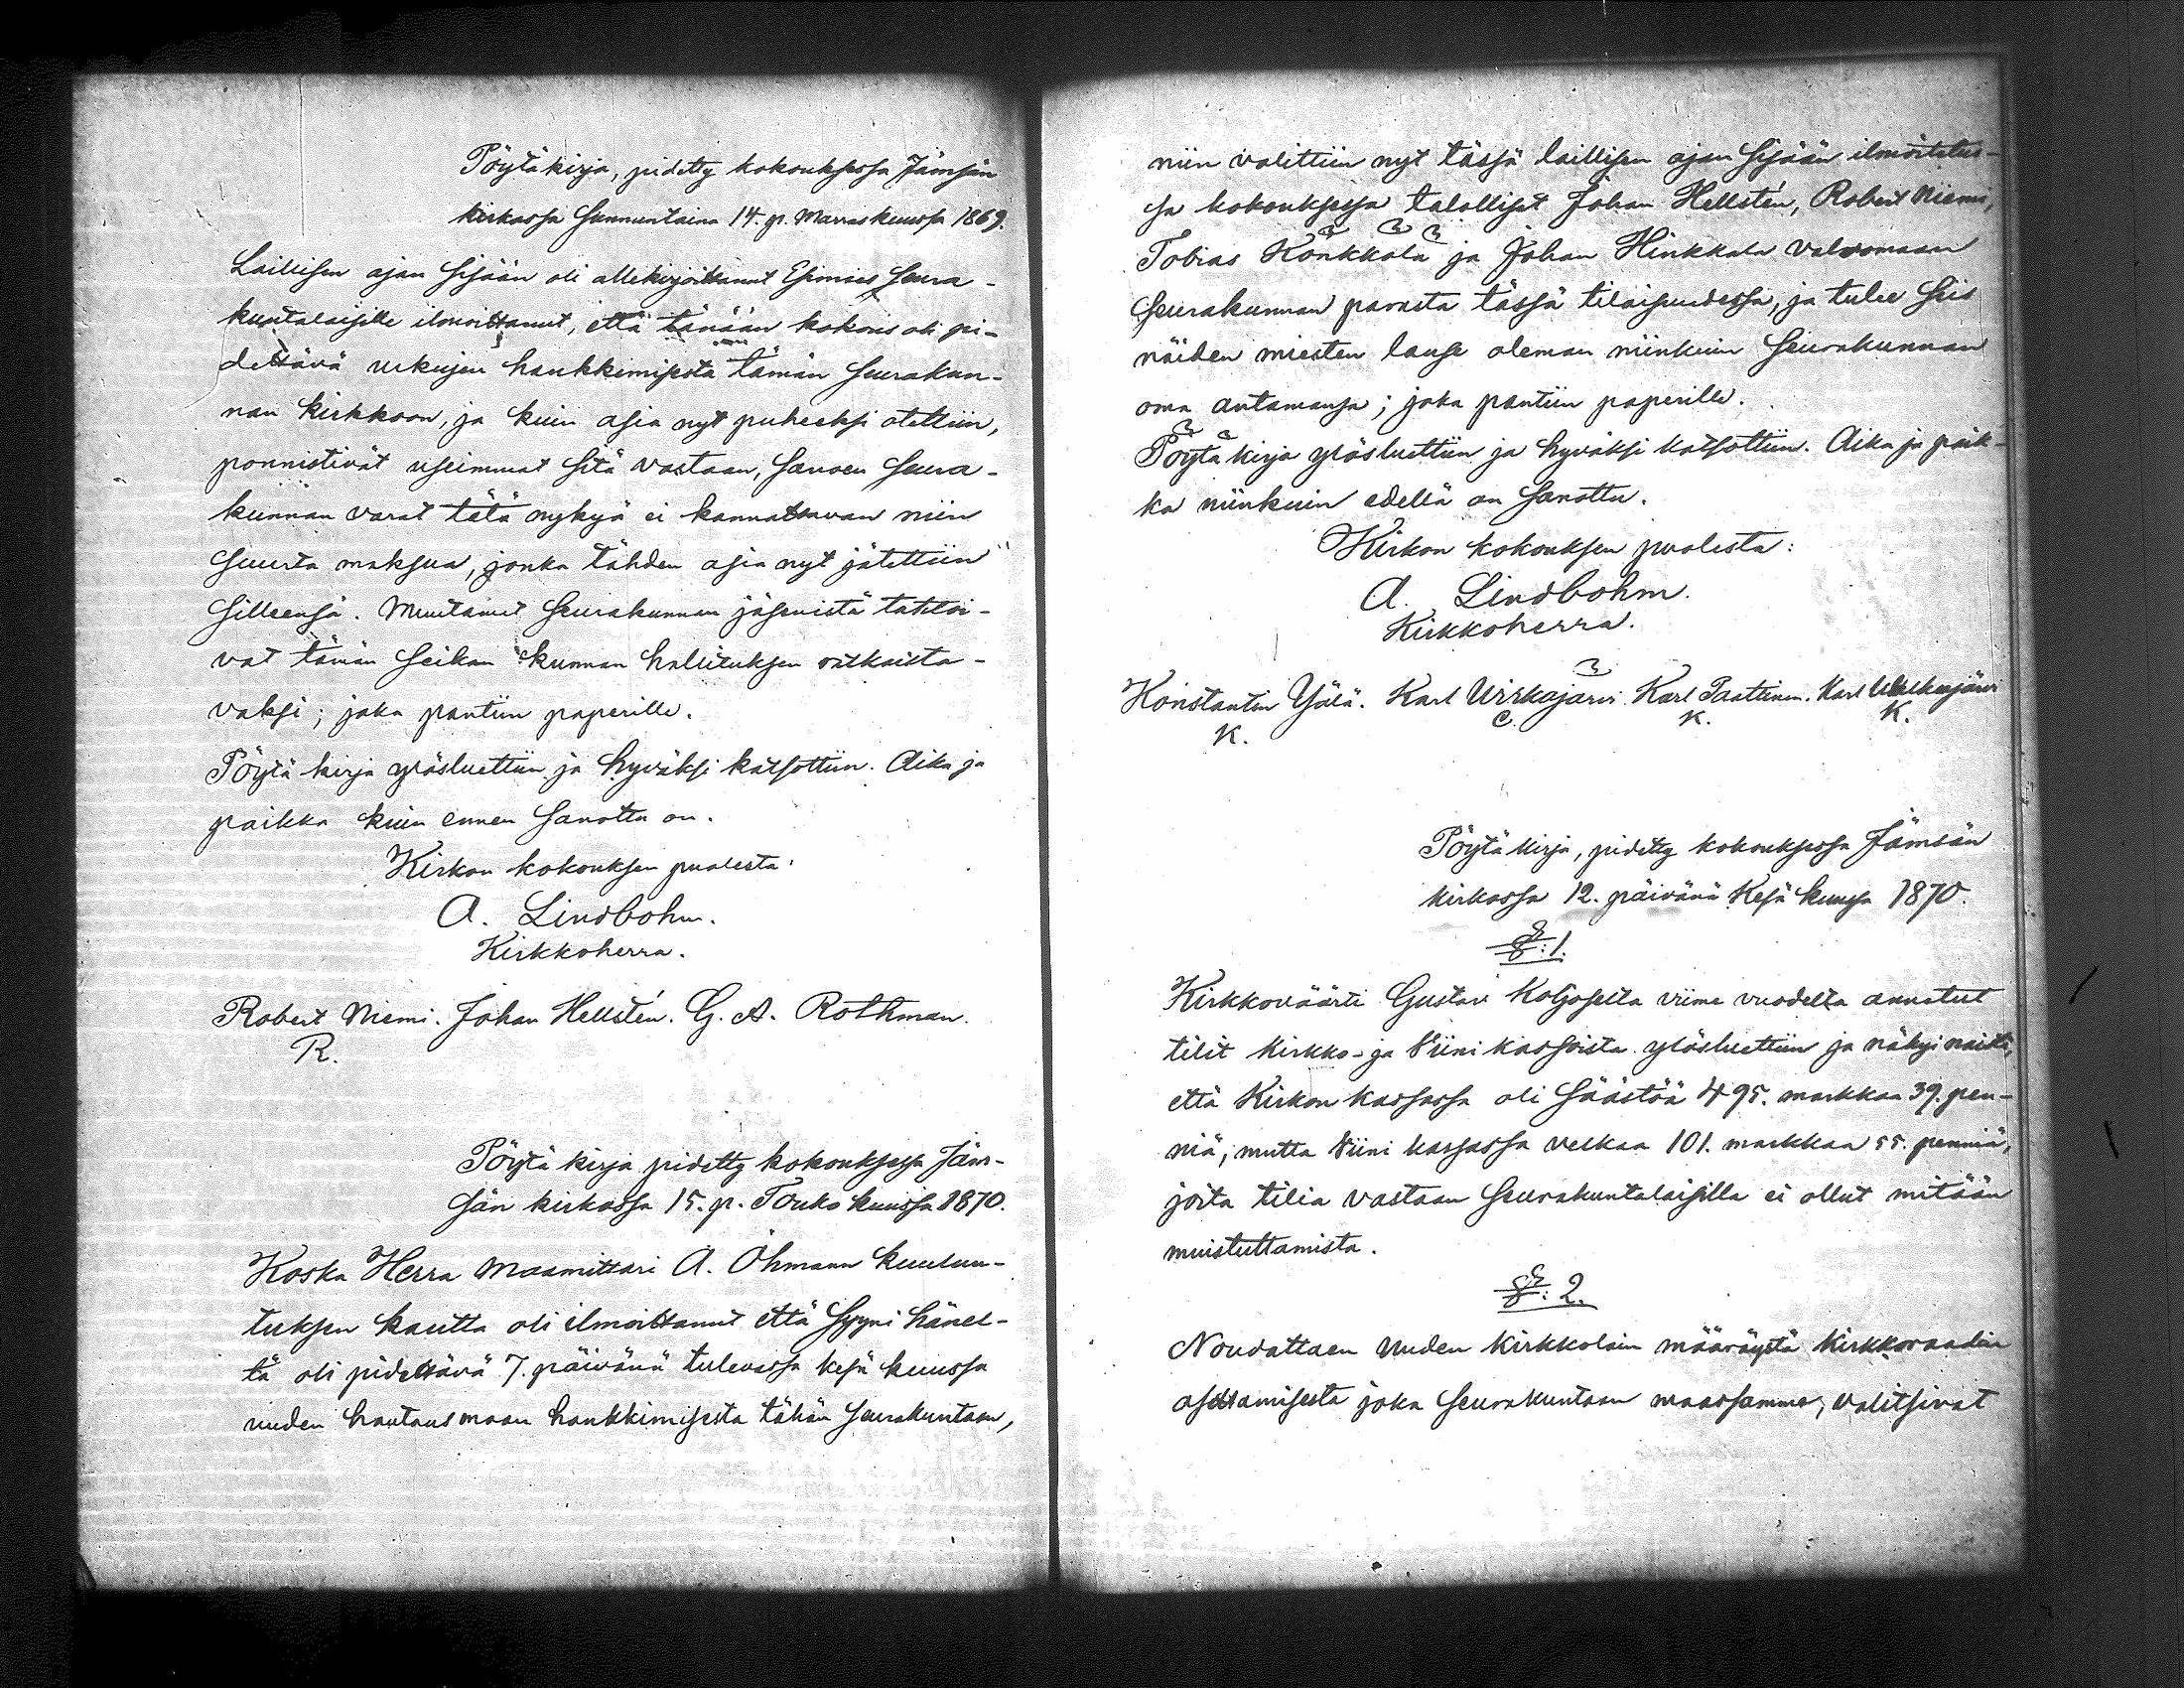 Pöytäkirja, pidetty kokouksessa Jämsän
kirkossa Sunnuntaina 14. p. Marraskuussa 1869.
Laillisen ajan sisään oli allekirjoittanut Esimies Seura-
kuntalaisille ilmoittanut, että tänään kokous oli pi-
dettävä urkujen hankkimisesta tämän Seurakun-
nan kirkkoon, ja kuin asia nyt puheeksi otettiin,
ponnistivat useimmat sitä vastaan, sanoen Seura-
kunnan varat tätä nykyä ei kannattavan niin
suurta maksua, jonka tähden asia nyt jätettiin
silleensä. Muutamat Seurakunnan jäsenistä tahtoi-
vat tämän seikan kunnan hallituksen ratkaista-
vaksi; joka pantiin paperille.
Pöytäkirja ylösluettiin ja hyväksi katsottiin. Aika ja
paikka kuin ennen sanottu on.
Kirkon kokouksen puolesta:
A. Lindbohm.
Kirkkoherra.
Robert Niemi. Johan Hellstén. G. A. Rothman.
R.
Pöytäkirja pidetty kokouksessa Jäm-
sän kirkossa 15. p. Toukokuussa 1870.
Koska Herra Maamittari A. Öhmann kuulu-
tuksen kautta oli ilmoittanut että syyni hänel-
tä oli pidettävä 7. päivänä tulevassa kesäkuussa
uuden hautausmaan hankkimisesta tähän Seurakuntaan,
niin valittiin nyt tässä laillisen ajan sisään ilmoitetus-
sa kokouksessa talolliset Johan Hellstén, Robert Niemi,
Tobias Könkkölä ja Johan Hinkkala valvomaan
Seurakunnan parasta tässä tilaisuudessa, ja tulee siis
näiden miesten lause oleman niinkuin Seurakunnan
oma antamansa; joka pantiin paperille.
Pöytäkirja ylösluettiin ja hyväksi katsottiin. Aika ja paik-
ka niinkuin edellä on sanottu.
Kirkon kokouksen puolesta:
A. Lindbohm.
Kirkkoherra.
Konstantin Yälä. Karl Wirkajärvi. Karl Paattinen. Karl
K. C. K. K.
Pöytäkirja, pidetty kokouksessa Jämsän
kirkossa 12. päivänä Kesäkuussa 1870.
§: 1.
Kirkkoväärti Gustav Koljoselta viime vuodelta annetut
tilit kirkko- ja Viinikassoista ylösluettiin ja näkyi näistä,
että Kirkon kassassa oli säästöä 495. markkaa 39. pen-
niä; mutta Viini kassassa velkaa 101. markkaa 55. penniä,
joita tiliä vastaan Seurakuntalaisilla ei ollut mitään
muistuttamista.
§: 2.
Noudattaen uuden Kirkkolain määräystä kirkkoraadin
asettamisesta joka Seurakuntaan maassamme, valitsivat